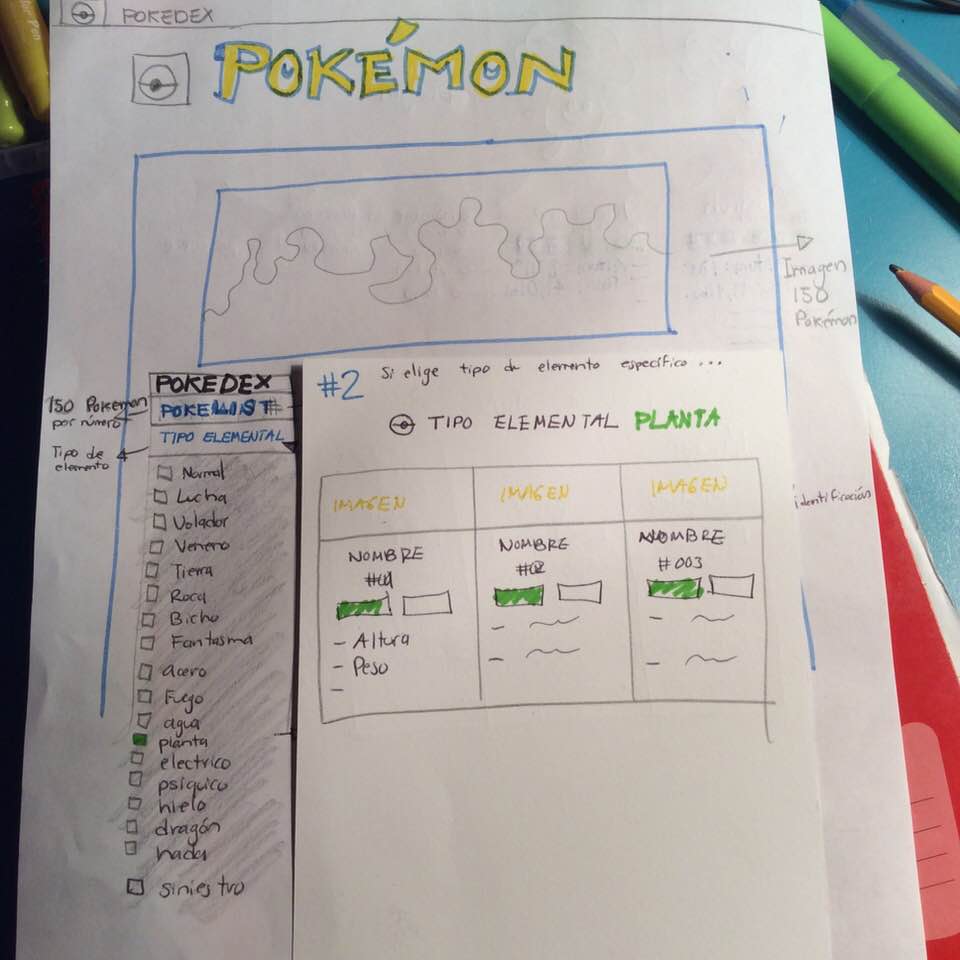 POKEDEX
POKÉMON
Imagen
150
Pokémon
150 Pokemon
por número
Tipo de
elemento
POKEDEX
POKELIST#
TIPO ELEMENTAL
Normal
Lucha
Volador
Veneno
Tierra
Roca
Bicho
Fantasma
acero
Fuego
agua
planta
electrico
psíquico
hielo
dragón
hada
siniestro
#2 Si elige tipo de elemento específico ...
TIPO ELEMENTAL PLANTA
IMAGEN IMAGEN IMAGEN
NOMBRE NOMBRE NOMBRE
#003
- Altura
- Peso
-
identificación